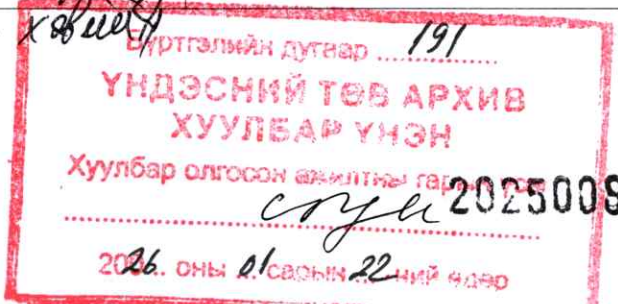 Бүртгэлийн дугаар ......191......
ҮНДЭСНИЙ ТӨВ АРХИВ
ХУУЛБАР ҮНЭН
Хуулбар олгосон ажилтны
2025009
2026.. оны 01 сарын 22 ний өдөр